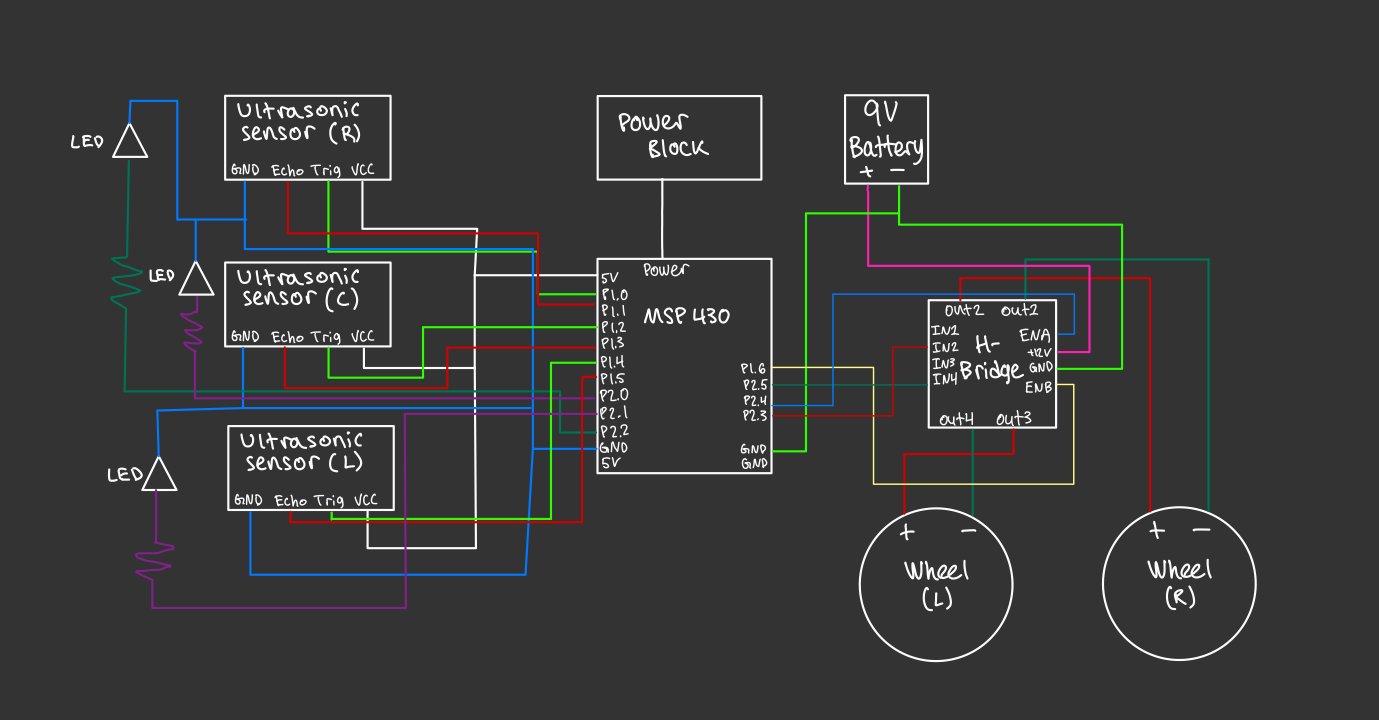 LED
Ultrasonic
sensor (R)
GND Echo Trig VCC
Power
Block
9V
Battery
+ −
LED
Ultrasonic
sensor (C)
GND Echo Trig VCC
LED
Ultrasonic
sensor (L)
GND Echo Trig VCC
Power
MSP 430
5V
P1.0
P1.1
P1.2
P1.3
P1.4
P1.5
P2.0
P2.1
P2.2
GND
5V
P1.6
P2.5
P2.4
P2.3
GND
GND
out2 out2
IN1
IN2
IN3
IN4
H-
Bridge
ENA
+12V
GND
ENB
out4 out3
+ −
Wheel
(L)
+ −
Wheel
(R)